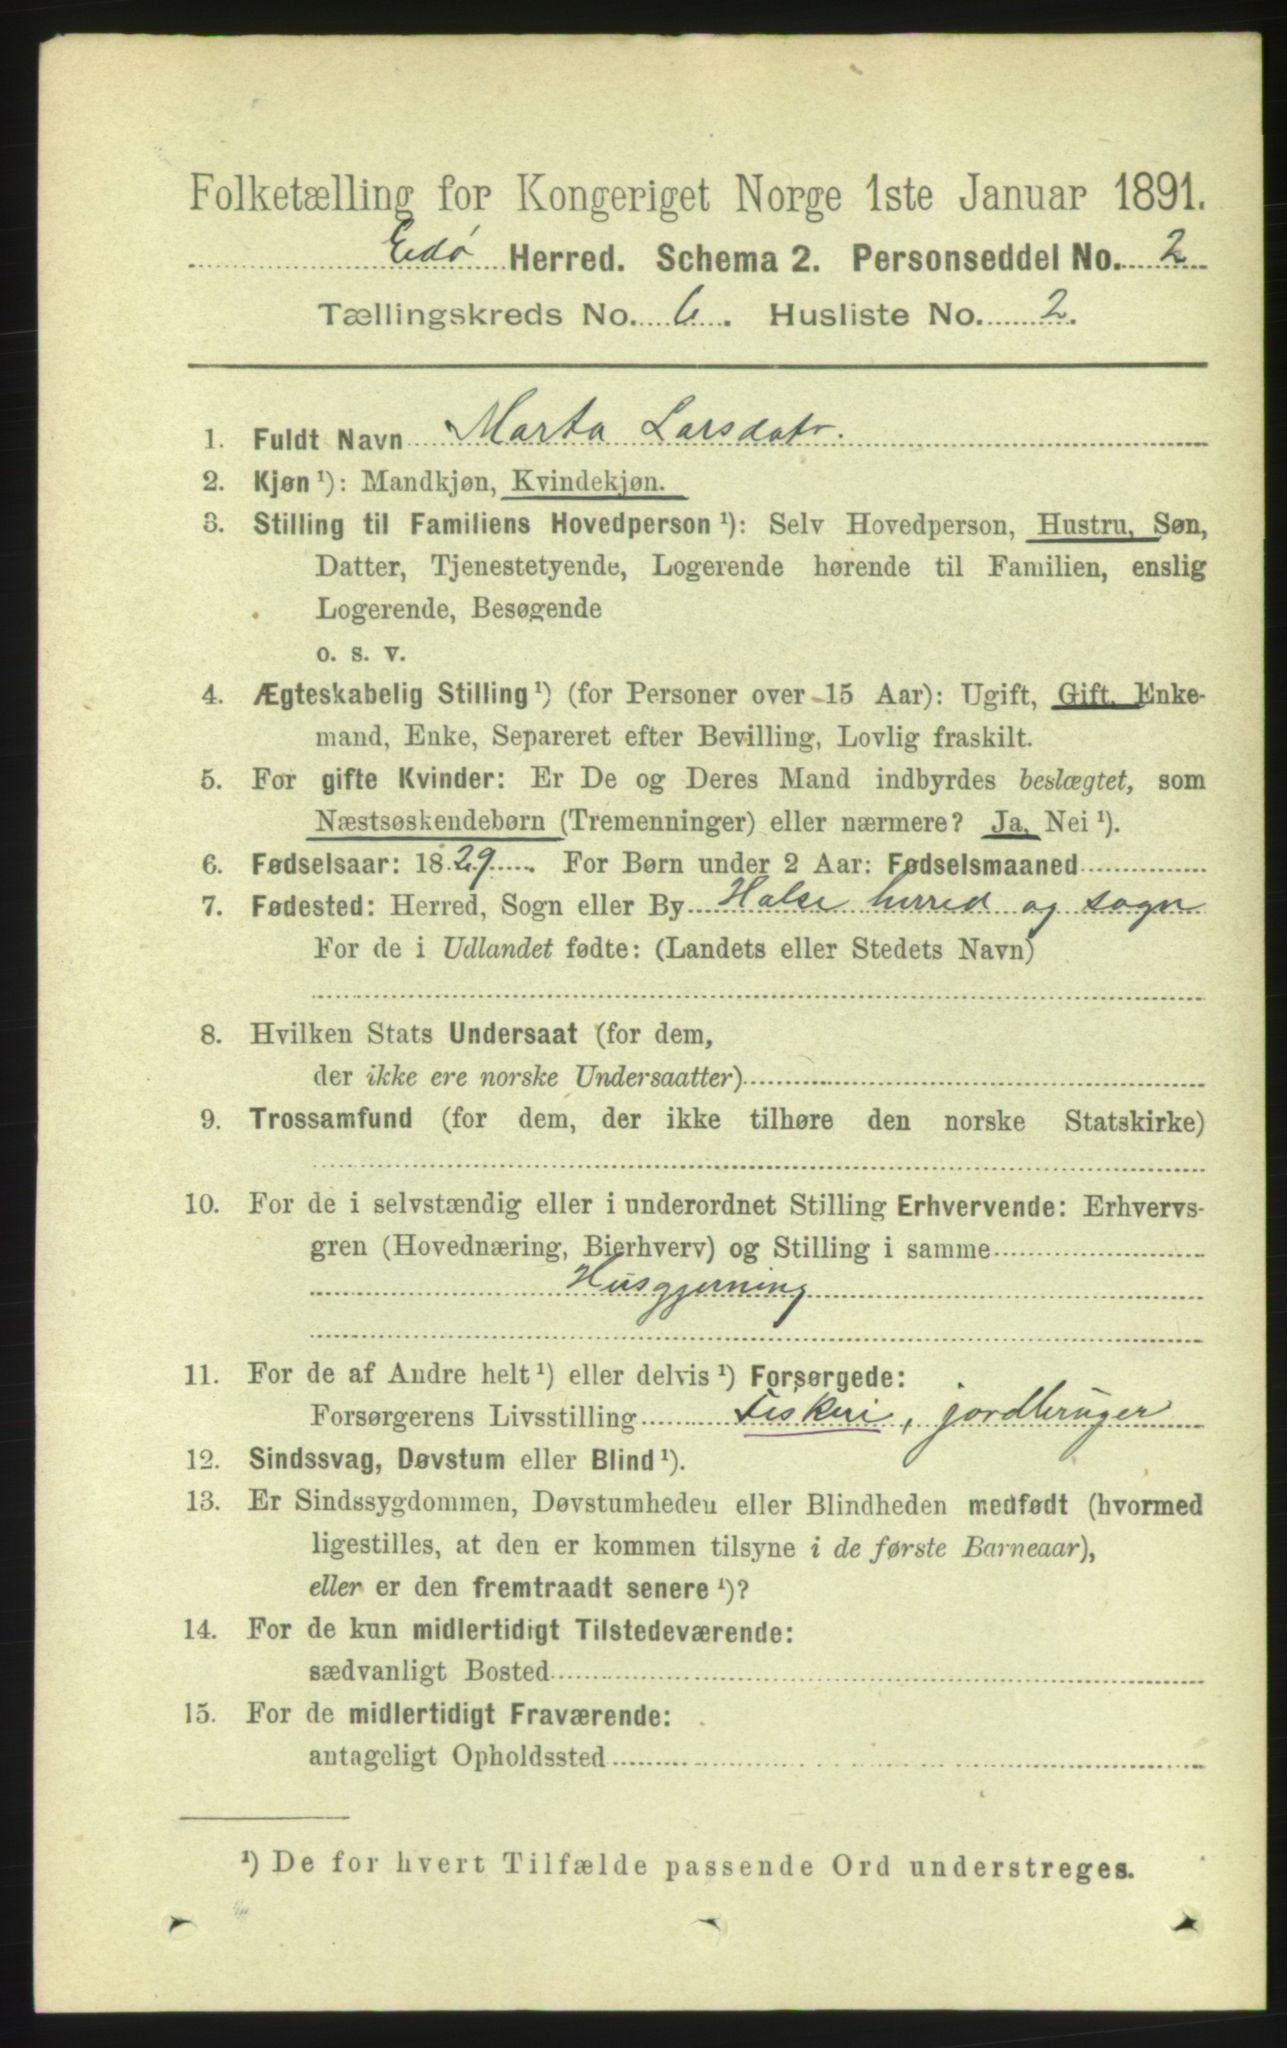 Folketælling for Kongeriget Norge 1ste Januar 1891.
Edø Herred. Schema 2. Personseddel No. 2
Tællingskreds No. 6. Husliste No. 2.
1. Fuldt Navn Marta Larsdatr.
2. Kjøn ¹): Mandkjøn, Kvindekjøn.
3. Stilling til Familiens Hovedperson ¹): Selv Hovedperson, Hustru, Søn,
Datter, Tjenestetyende, Logerende hørende til Familien, enslig
Logerende, Besøgende
o. s. v.
4. Ægteskabelig Stilling ¹) (for Personer over 15 Aar): Ugift, Gift, Enke-
mand, Enke, Separeret efter Bevilling, Lovlig fraskilt.
5. For gifte Kvinder: Er De og Deres Mand indbyrdes beslægtet, som
Næstsøskendebørn (Tremenninger) eller nærmere? Ja, Nei ¹).
6. Fødselsaar: 1829. For Børn under 2 Aar: Fødselsmaaned
7. Fødested: Herred, Sogn eller By Halse herred og sogn
For de i Udlandet fødte: (Landets eller Stedets Navn)
8. Hvilken Stats Undersaat (for dem,
der ikke ere norske Undersaatter)
9. Trossamfund (for dem, der ikke tilhøre den norske Statskirke)
10. For de i selvstændig eller i underordnet Stilling Erhvervende: Erhvervs-
gren (Hovednæring, Bierhverv) og Stilling i samme
Husgjerning
11. For de af Andre helt ¹) eller delvis ¹) Forsørgede:
Forsørgerens Livsstilling Fiskeri, jordbruger
12. Sindssvag, Døvstum eller Blind ¹).
13. Er Sindssygdommen, Døvstumheden eller Blindheden medfødt (hvormed
ligestilles, at den er kommen tilsyne i de første Barneaar),
eller er den fremtraadt senere ¹)?
14. For de kun midlertidigt Tilstedeværende:
sædvanligt Bosted
15. For de midlertidigt Fraværende:
antageligt Opholdssted
¹) De for hvert Tilfælde passende Ord understreges.